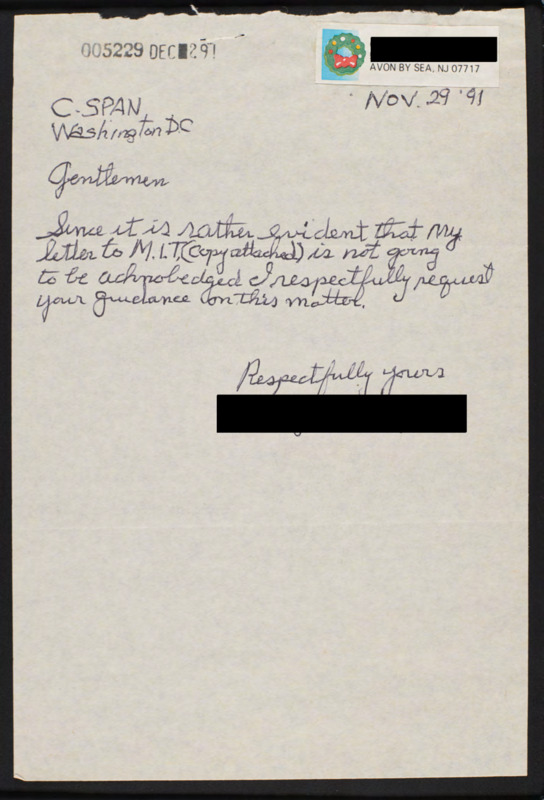 005229 DEC 291
AVON BY SEA, NJ 07717
NOV. 29 '91
C-SPAN
Washington DC
Gentlemen
Since it is rather evident that my
letter to M.I.T. (copy attached) is not going
to be acknobedged I respectfully request
your guidance on this matter.
Respectfully yours